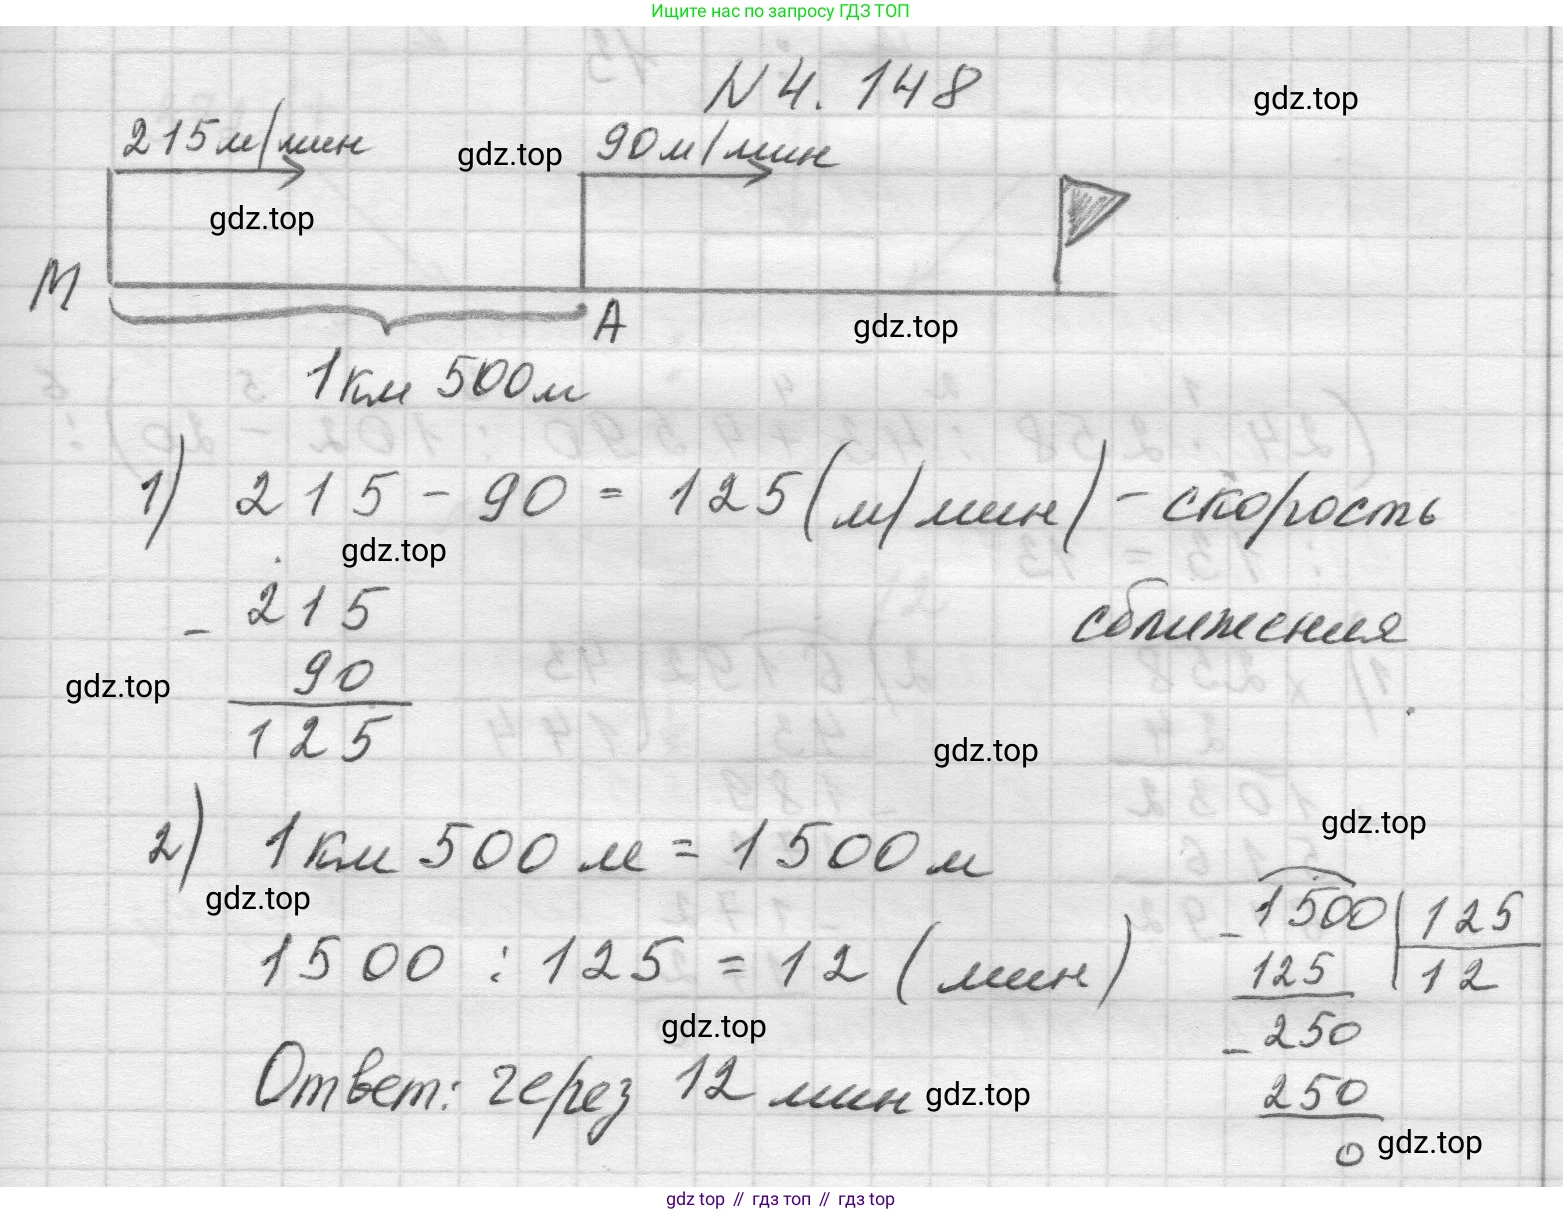 Ищите нас по запросу ГДЗ ТОП
N 4. 148
gdz.top
215 м/мин
gdz.top
90 м/мин
gdz.top
М
А
gdz.top
1 км 500 м
1) 215 - 90 = 125 (м/мин) - скорость
gdz.top
сближения
- 215
90
125
gdz.top
gdz.top
2) 1 км 500 м = 1500 м
gdz.top
gdz.top
1500 : 125 = 12 (мин)
- 1500 | 125
125 | 12
- 250
250
0
gdz.top
Ответ: через 12 мин
gdz.top
gdz.top
gdz top // гдз топ // гдз top